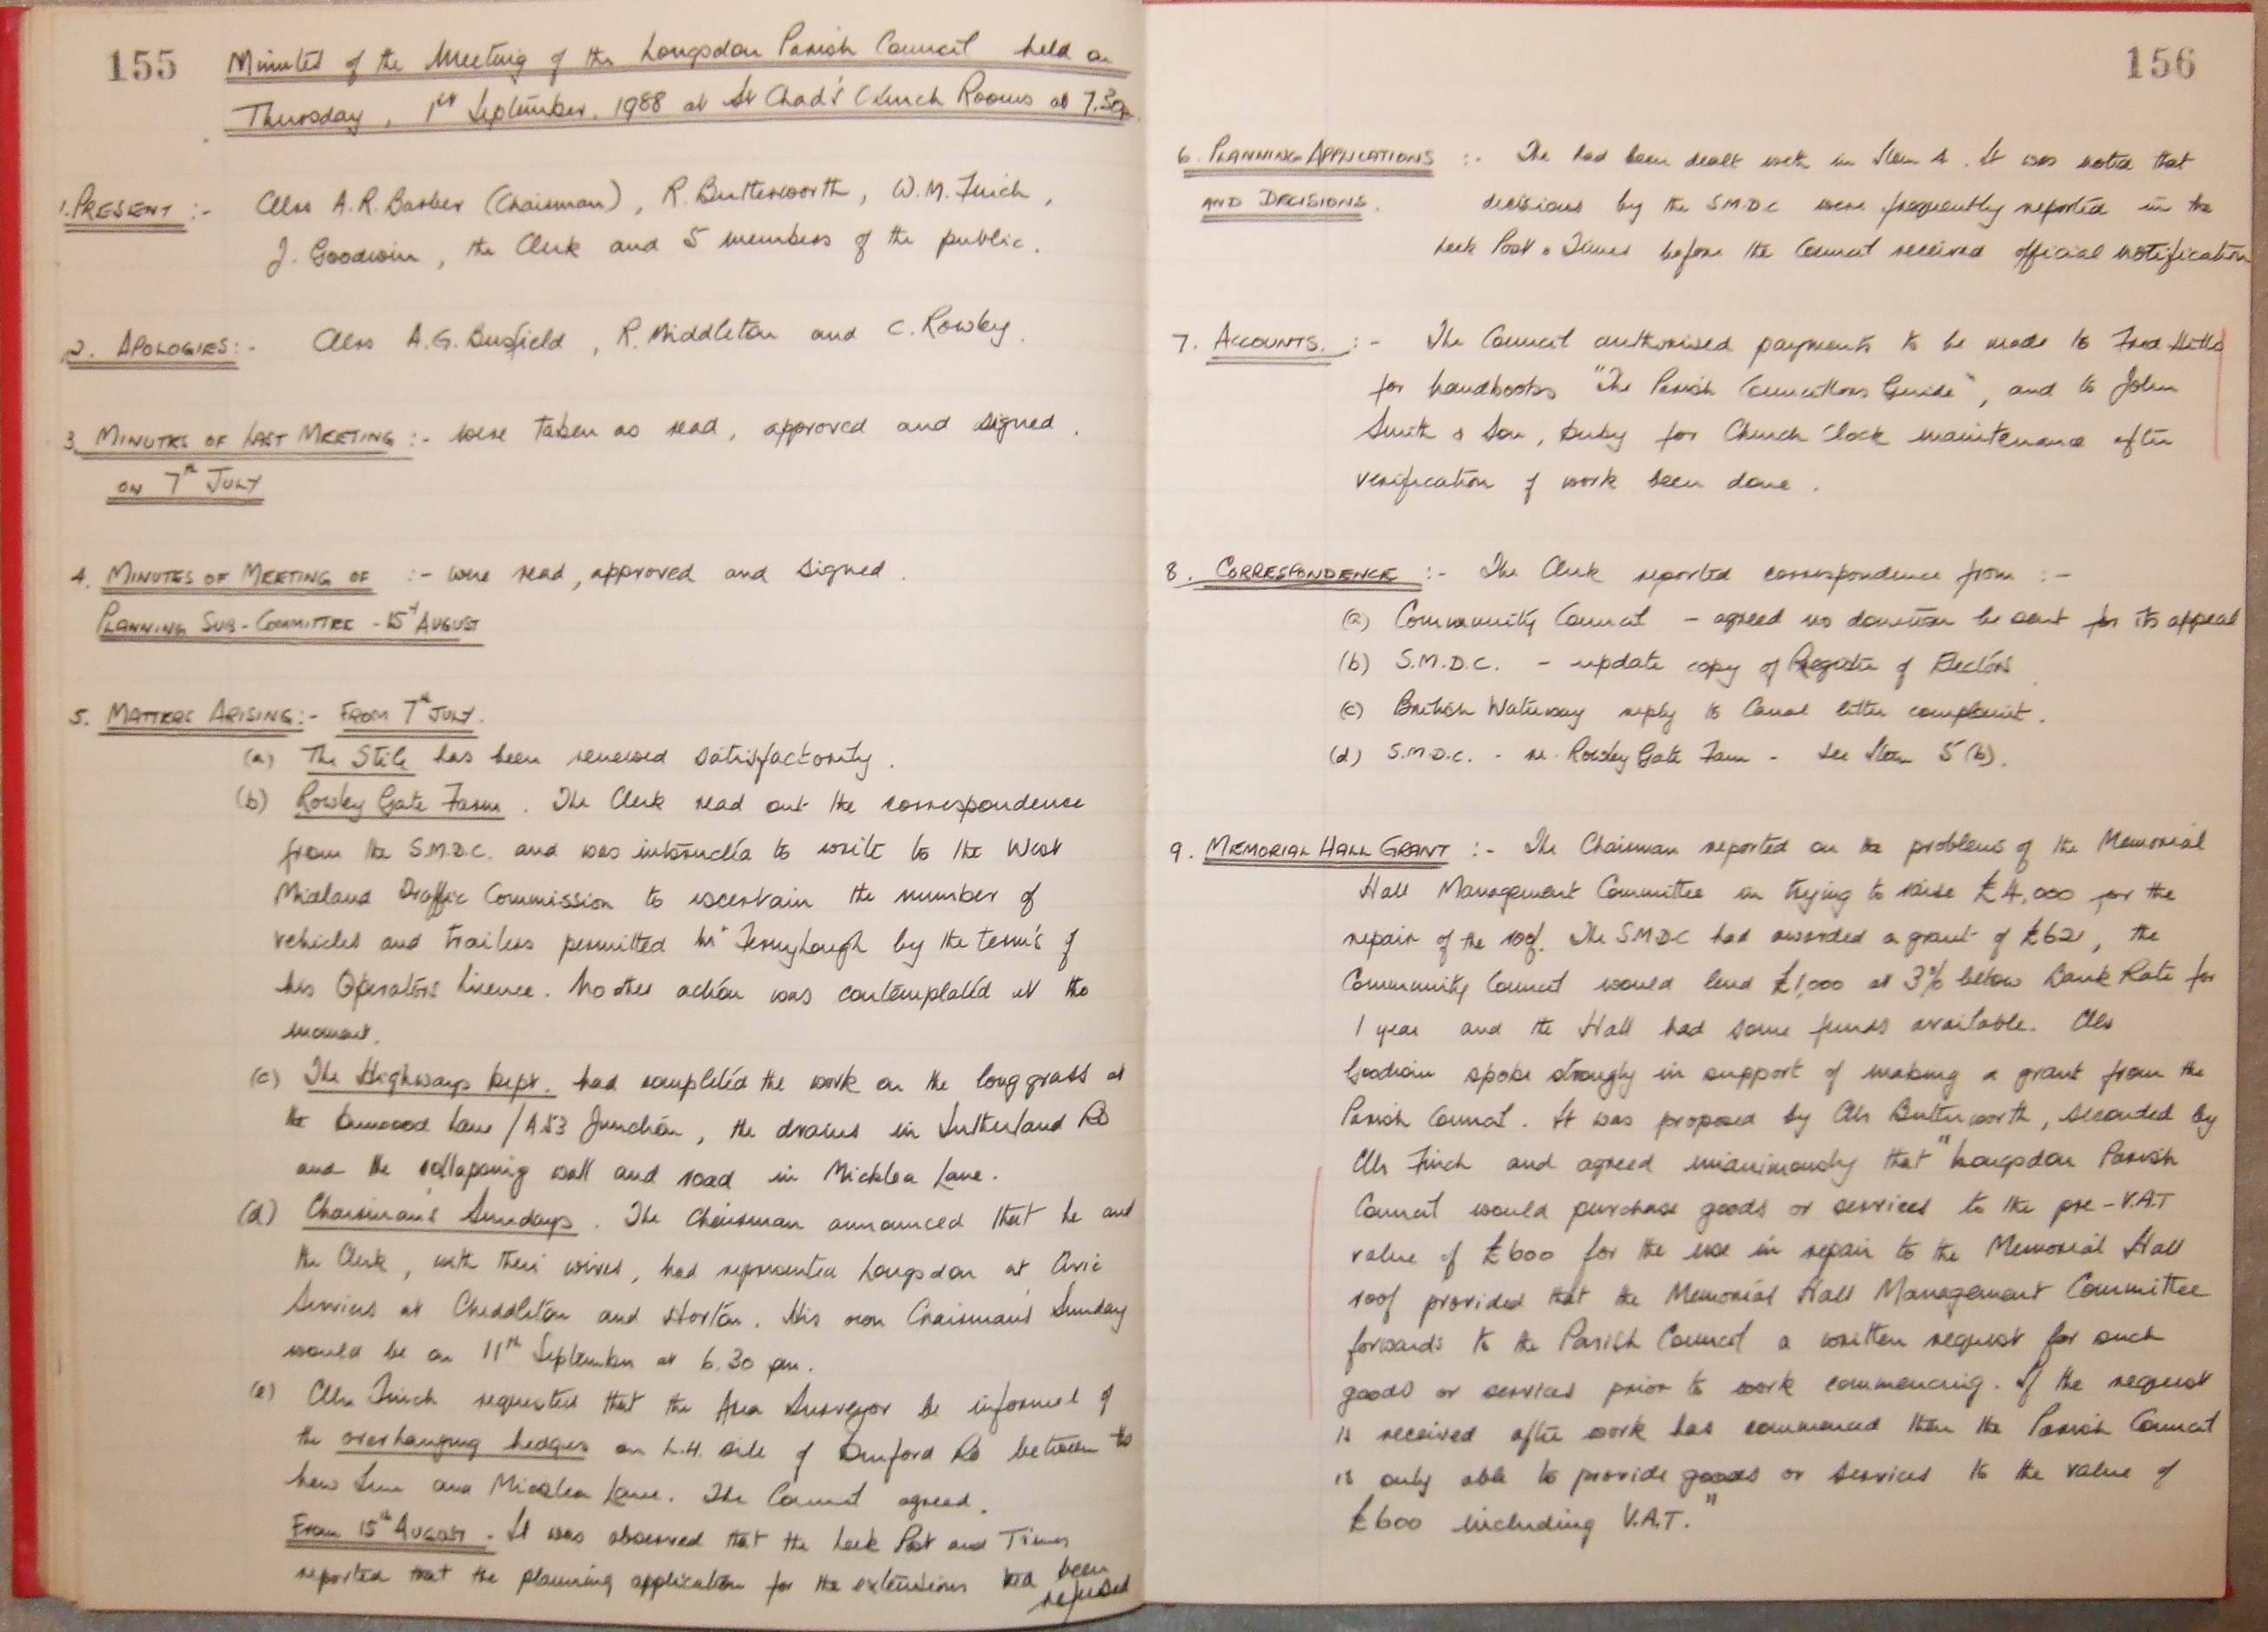 155
Minutes of the Meeting of the Longsdon Parish Council held on
Thursday, 1st September, 1988 at St Chad's Church Rooms at 7.30p.
1. PRESENT :- Cllrs A.R. Barber (Chairman), R. Butterworth, W.M. Finch,
J. Goodwin, the Clerk and 5 members of the public.
2. APOLOGIES :- Cllrs A.G. Busfield, R. Middleton and C. Rowley.
3. MINUTES OF LAST MEETING :- were taken as read, approved and signed.
ON 7th JULY
4. MINUTES OF MEETING OF :- were read, approved and signed.
PLANNING SUB-COMMITTEE - 15th AUGUST
5. MATTERS ARISING :- FROM 7th JULY.
(a) The Stile has been renewed satisfactorily.
(b) Rowley Gate Farm. The Clerk read out the correspondence
from the S.M.D.C. and was instructed to write to the West
Midland Traffic Commission to ascertain the number of
vehicles and trailers permitted Mr Fernyhough by the terms of
his Operators Licence. No other action was contemplated at the
moment.
(c) The Highways Dept. had completed the work on the long grass at
the Lane / A53 Junction, the drains in Sutherland Rd
and the collapsing wall and road in Micklea Lane.
(d) Chairman's Sundays. The Chairman announced that he and
the Clerk, with their wives, had represented Longsdon at Civic
Services at Cheddleton and Horton. His own Chairman's Sunday
would be on 11th September at 6.30 pm.
(e) Cllr Finch requested that the Area Surveyor be informed of
the overhanging hedges on L.H. side of Dunford Rd between the
New Inn and Micklea Lane. The Council agreed.
From 15th AUGUST - It was observed that the Leek Post and Times
reported that the planning application for the extensions had been
refused
156
6. PLANNING APPLICATIONS :- The had been dealt with in Item 4. It was noted that
AND DECISIONS. decisions by the S.M.D.C were frequently reported in the
Leek Post & Times before the Council received official notification
7. ACCOUNTS. :- The Council authorised payments to be made to Fred Hills
for handbooks "The Parish Councillors Guide", and to John
Smith & Son, Derby for Church Clock maintenance after
verification of work been done.
8. CORRESPONDENCE :- The Clerk reported correspondence from :-
(a) Community Council - agreed no donation be sent for its appeal
(b) S.M.D.C. - update copy of Register of Electors
(c) British Waterway reply to Canal litter complaint.
(d) S.M.D.C. - re. Rowley Gate Farm - see Item 5(b).
9. MEMORIAL HALL GRANT :- The Chairman reported on the problems of the Memorial
Hall Management Committee in trying to raise £4,000 for the
repair of the roof. The S.M.D.C had awarded a grant of £621, the
Community Council would lend £1,000 at 3% below Bank Rate for
1 year and the Hall had some funds available. Cllr
Goodwin spoke strongly in support of making a grant from the
Parish Council. It was proposed by Cllr Butterworth, seconded by
Cllr Finch and agreed unanimously that "Longsdon Parish
Council would purchase goods or services to the pre-V.A.T
value of £600 for the use in repair to the Memorial Hall
roof provided that the Memorial Hall Management Committee
forwards to the Parish Council a written request for such
goods or services prior to work commencing. If the request
is received after work has commenced then the Parish Council
is only able to provide goods or services to the value of
£600 including V.A.T."